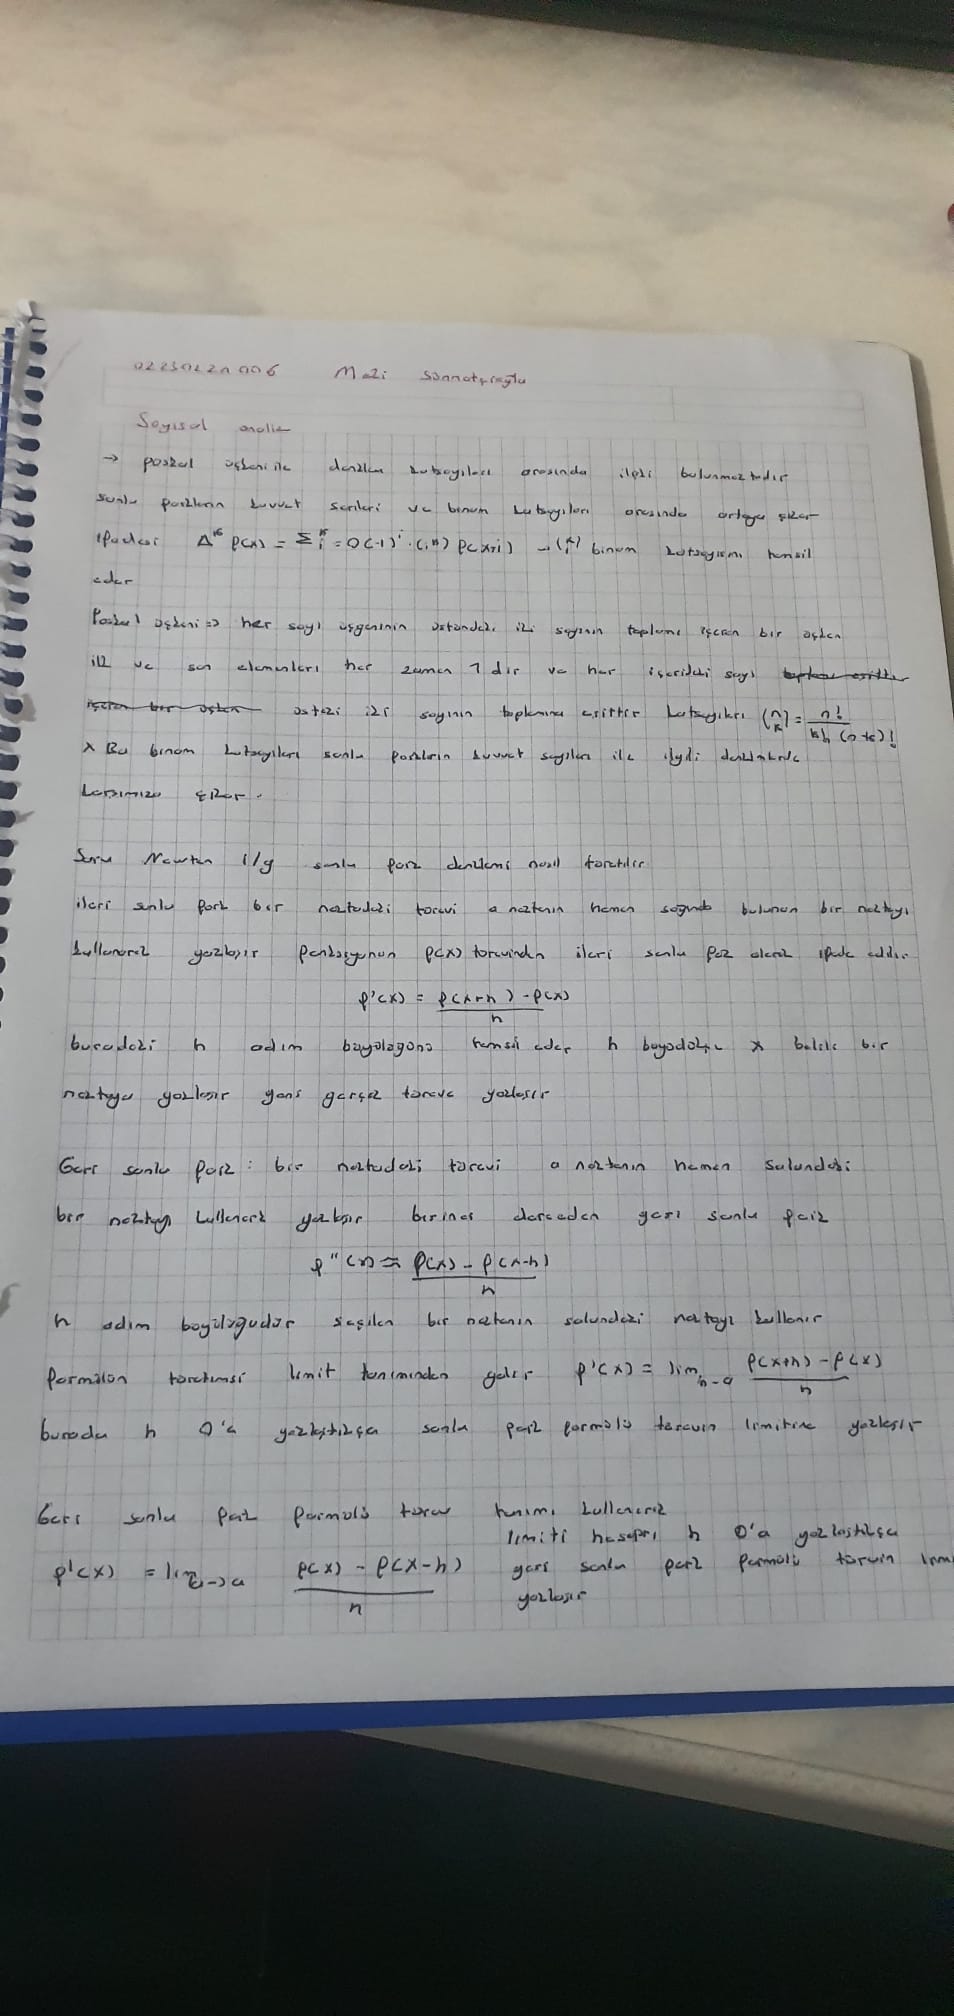 Sayısal analiz
→ paskal üçkeni ile denklem katsayıları arasında ilşki bulunmaktadır
sonlu farkların kuvvet serileri ve binom katsayıları arasında ortaya çıkar
ifadesi Δᵏ f(x) = Σᵏᵢ = 0 (-1)ⁱ . f(x+i) → binom katsayısını temsil
eder
Paskal üçkeni => her sayı üçgeninin üstündeki iki sayının toplamı içeren bir üçken
ilk ve son elemanları her zaman 1 dir ve her içerideki sayı
üsteki iki sayının toplamına esittir katsayıları (n k) = n! / k! (n-k)!
x Bu binom katsayıları sonlu farkların kuvvet sayıları ile ilgili denklemlerde
karsımıza çıkar.
Soru Newton i/g sonlu fark denklemi nasıl türetilir
ileri sonlu fark bir noktadaki türevi o noktanın hemen sağında bulunan bir noktayı
kullanarak yaklaşır fonksiyonun f(x) türevinden ileri sonlu fark olarak ifade edilir.
f'(x) = f(x+h) - f(x) / h
buradaki h adım büyüklüğünü temsil eder h x belirli bir
noktaya yaklasır yani gerçek türeve yaklasır
Geri sonlu fark : bir noktadaki türevi o noktanın hemen solundaki
bir noktayı kullanarak yaklaşır birinci dereceden geri sonlu fark
f''(x) ≈ f(x) - f(x-h) / h
h adım büyülügüdür seçilen bir noktanın solundaki noktayı kullanır
formülün türetimsi limit tanımından gelir f'(x) = lim h→0 f(x+h) - f(x) / h
burada h 0'a yaklaştıkça sonlu fark formülü türevin limitine yaklaşır
Geri sonlu fark formülü türev tanımı kullanarız
limiti h 0'a yaklastıkça
f'(x) = lim f(x) - f(x-h) / h geri sonlu fark formülü türevin
yaklasır